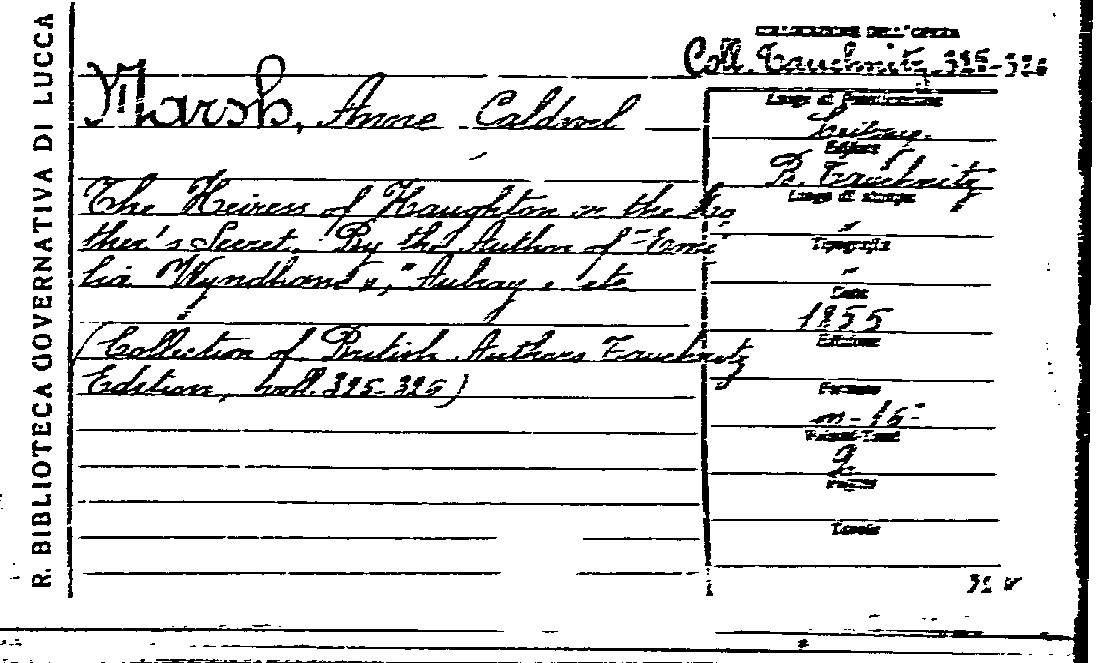 R. BIBLIOTECA GOVERNATIVA DI LUCCA
COLLOCAZIONE DELL'OPERA
Coll. Tauchnitz 325-326
Marsh, Anne Caldwel
The Heiress of Haughton or the Mo
ther's Secret. By the Author of "Emi
lia Wyndham", "Aubray" etc
(Collection of British Authors Tauchnitz
Edition, voll. 325-326)
Luogo di Pubblicazione
Leipzig.
Editore
B. Tauchnitz
Luogo di stampa
"
Tipografia
"
Data
1855
Edizione
Formato
m-16°
Volumi-Tomi
2
Pagine
Tavole